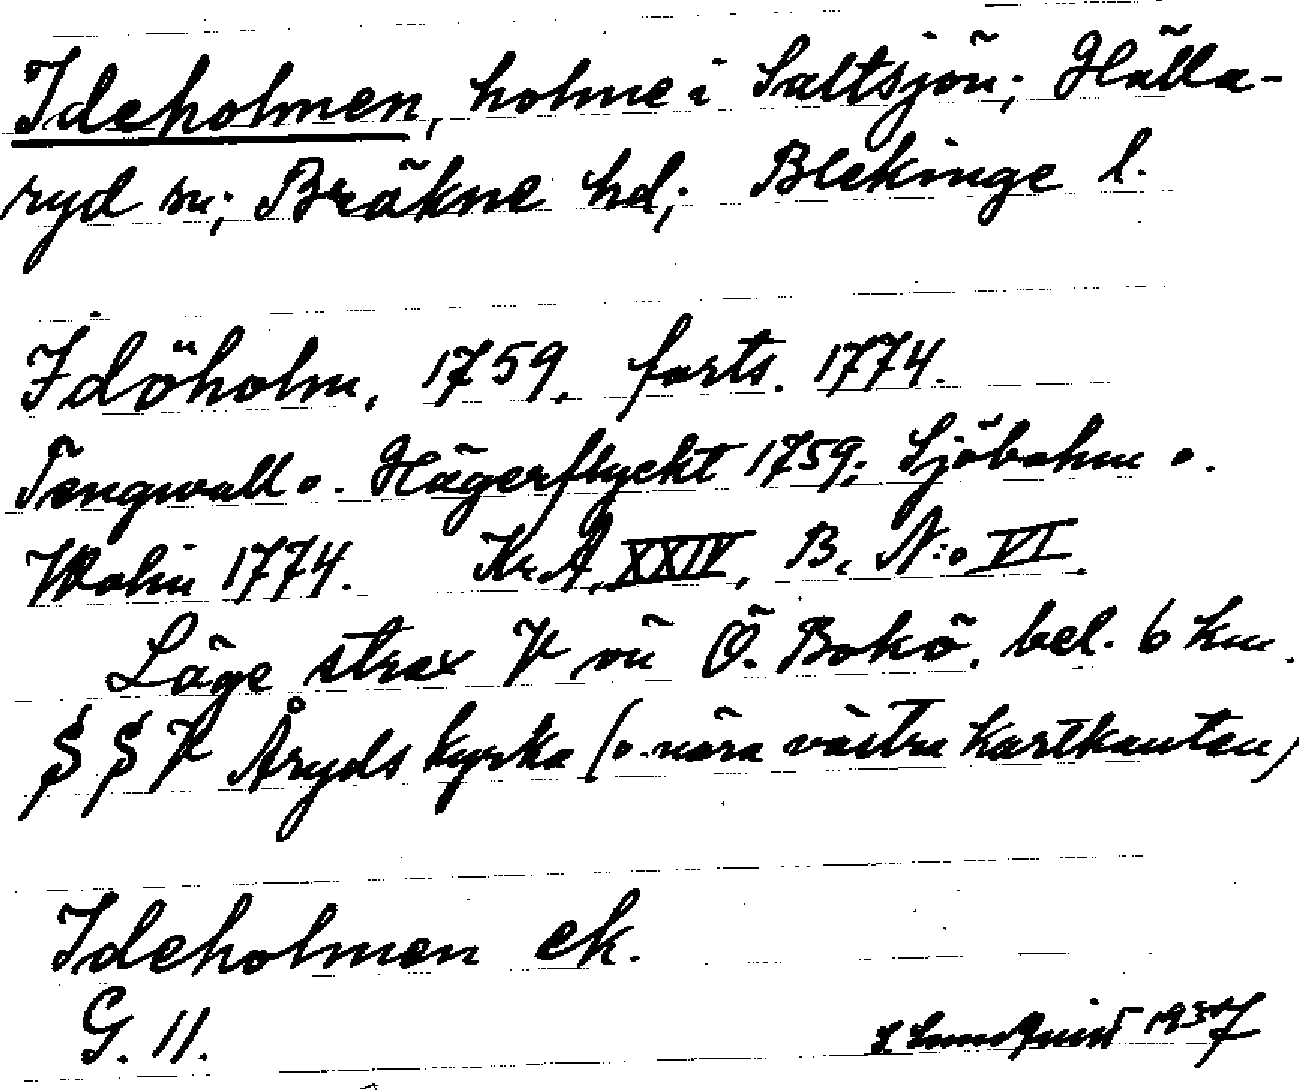 Ideholmen, holme i Saltsjön; Hälla-
ryd sn; Bräkne hd; Blekinge l.
Idöholm, 1759, forts. 1774.
Tengwall o. Hägerflycht 1759; Sjöbohm o.
Wohn 1774. Kr.A. XXIV, B. N:o VI.
Läge strax V om Ö. Bokö, bel. 6 km.
S S V Åryds kyrka (o. nära västra kartkanten)
Ideholmen ek.
G. 11. 1937